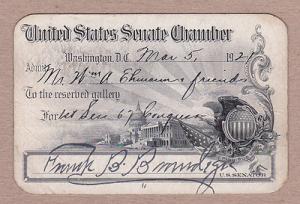 United States Senate Chamber
Washington, D.C. Mar 5, 1921
Admit
Mr Wm A Ehmann & friends
To the reserved gallery
For 1st Sess 67 Congress
Frank B. Brandegee
U.S. SENATOR